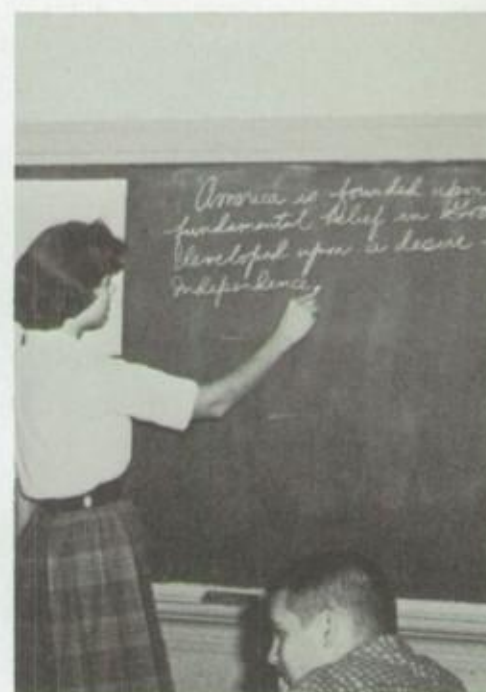 America is founded upon
fundamental belief in
Developed upon a desire
independence,